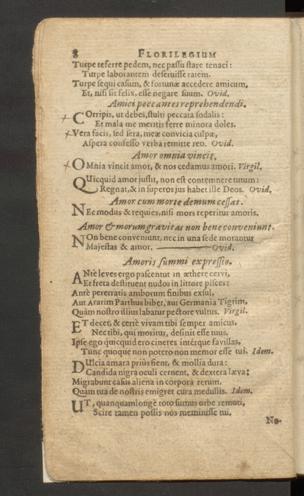 8 FLORILEGIUM
Turpe referre pedem, nec passu stare tenaci:
Turpe laborantem deseruisse ratem.
Turpe sequi casum, & fortunæ accedere amicum,
Et, nisi sit felix, esse negare suum. Ovid.
Amici peccantes reprehendendi.
COrripis, ut debes, stulti peccata sodalis:
Et mala me meritis ferre minora doles.
Vera facis, sed sera, meæ convicia culpæ,
Aspera confesso verba remitte reo. Ovid.
Amor omnia vincit.
OMnia vincit amor, & nos cedamus amori. Virgil.
QUicquid amor jussit, non est contemnere tutum:
Regnat, & in superos jus habet ille Deos. Ovid.
Amor cum morte demum cessat.
NEc modus & requies, nisi mors reperitur amoris.
Amor & morum gravitas non bene conveniunt.
NOn bene conveniunt, nec in una sede morantur
Majestas & amor. Ovid.
Amoris summi expressio.
ANtè leves ergo pascentur in æthere cervi,
Et freta destituent nudos in littore pisces:
Antè pererratis amborum finibus exsul,
Aut Ararim Parthus bibet, aut Germania Tigrim,
Quàm nostro illius labatur pectore vultus. Virgil.
ET decet, & certè vivam tibi semper amicus,
Nec tibi, qui moritur, desinit esse tuus,
Ipse ego quicquid ero cineres intérque favillas,
Tunc quoque non potero non memor esse tui. Idem.
DUlcia amara priùs fient, & mollia dura:
Candida nigra oculi cernent, & dextera læva:
Migrabunt casus aliena in corpora rerum,
Quàm tua de nostris emigret cura medullis. Idem.
UT, quanquam longè toto sumus orbe remoti,
Scire tamen possis nos meminisse tui,
No-